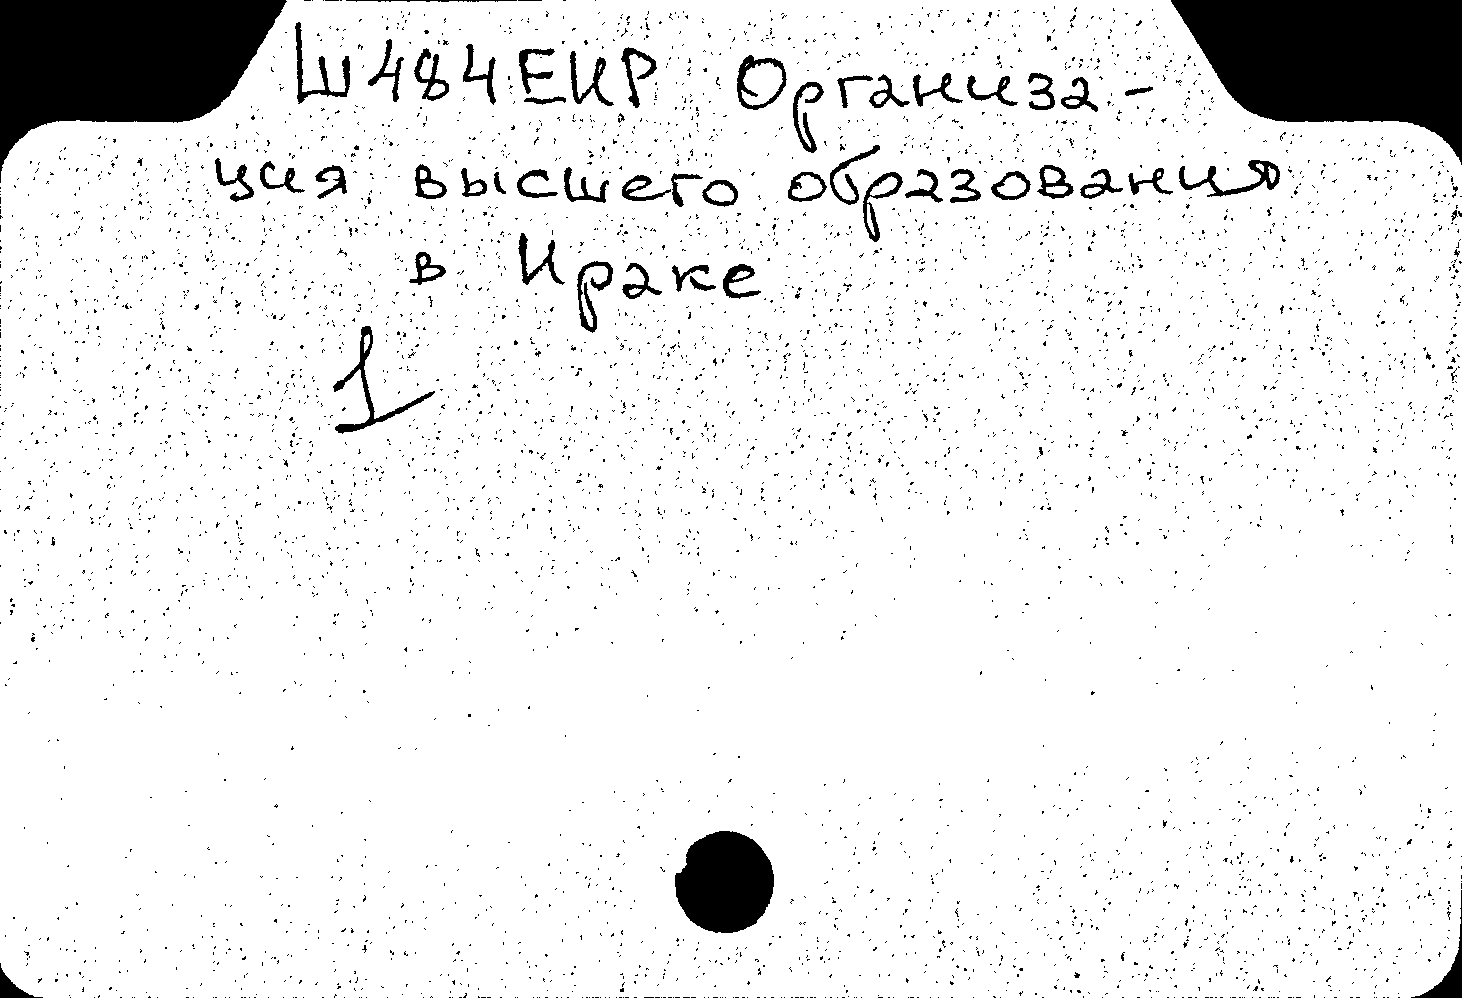 Ш484ЕИР Организа-
ция высшего образования
в Ираке
1